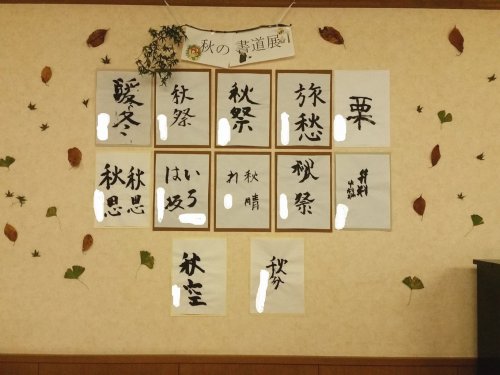 秋の書道展
暖冬
秋祭
秋祭
旅愁
栗
秋思
秋思
いろ
は坂
秋晴
れ
秋祭
秋空
秋分